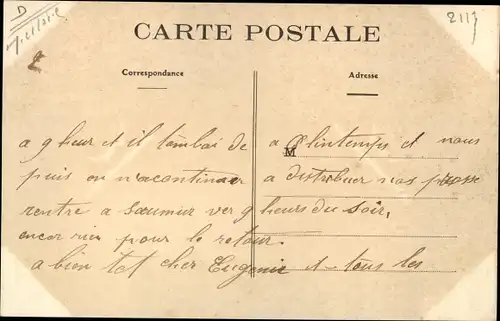 D
2117
CARTE POSTALE
Correspondance
Adresse
M
a 9 heur et il tombai de a Printemps et nous
puis on n'a continuer a distribuer nos
rentre a Saumur ver 9 heurs du soir,
encor rien pour le retour.
a bien tot cher Eugenie et tous les